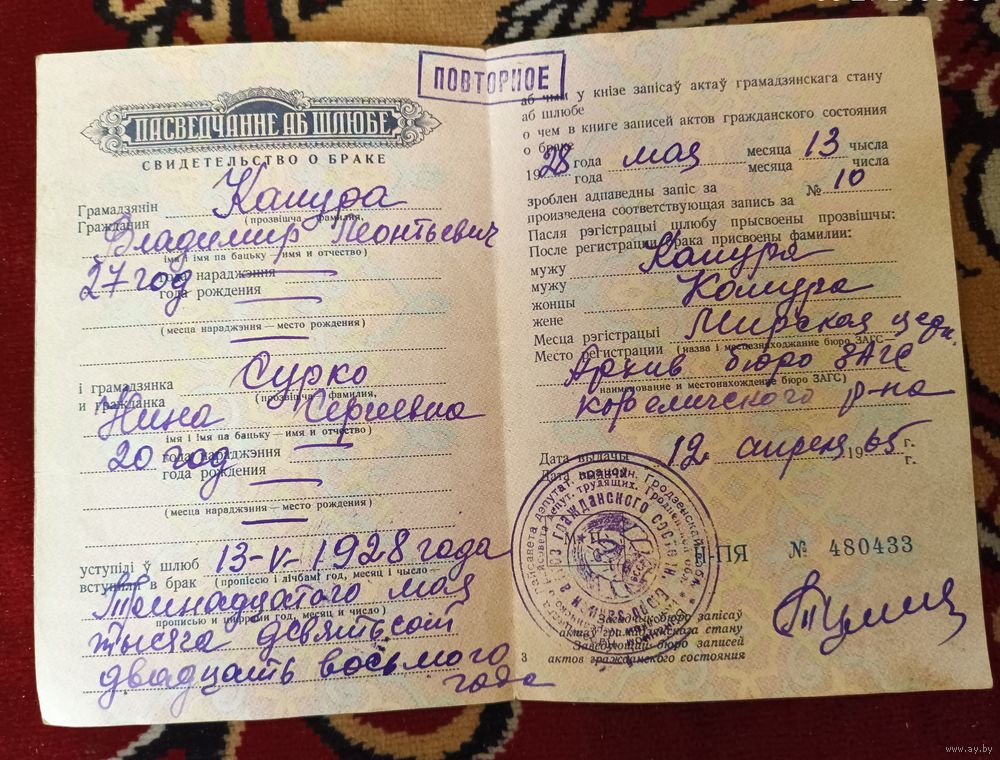 ПОВТОРНОЕ
ПАСВЕДЧАННЕ АБ ШЛЮБЕ
СВИДЕТЕЛЬСТВО О БРАКЕ
Грамадзянін
Гражданин Камура
(прозвішча — фамилия,
Владимир Леонтьевич
імя і імя па бацьку — имя и отчество)
27 год года нараджэння
года рождения
(месца нараджэння — место рождения)
і грамадзянка Сурко
и гражданка (прозвішча — фамилия,
Нина Сергеевна
імя і імя па бацьку — имя и отчество)
20 год года нараджэння
года рождения
(месца нараджэння — место рождения)
уступілі ў шлюб 13-V-1928 года
вступили в брак (пропіссю і лічбамі год, месяц і чысло —
Тринадцатого мая
прописью и цифрами год, месяц и число)
тысяча девятьсот
двадцать восьмого
года
аб чым у кнізе запісаў актаў грамадзянскага стану
аб шлюбе
о чем в книге записей актов гражданского состояния
о браке
1928 года мая месяца 13 чысла
года месяца числа
зроблен адпаведны запіс за
произведена соответствующая запись за № 10
Пасля рэгістрацыі шлюбу прысвоены прозвішчы:
После регистрации брака присвоены фамилии:
мужу Камура
мужу
жонцы Камура
жене
Месца рэгістрацыі Мирская церк.
Место регистрации (назва і месцазнаходжанне бюро ЗАГС —
Архив бюро ЗАГС
наименование и местонахождение бюро ЗАГС)
Кореличского р-на
Дата выдачы 12 апреля 1965 г.
Дата выдачи г.
М. П.
II-ПЯ № 480433
Загадчык бюро запісаў
актаў грамадзянскага стану
Заведующий бюро записей
актов гражданского состояния
3
www.ay.by